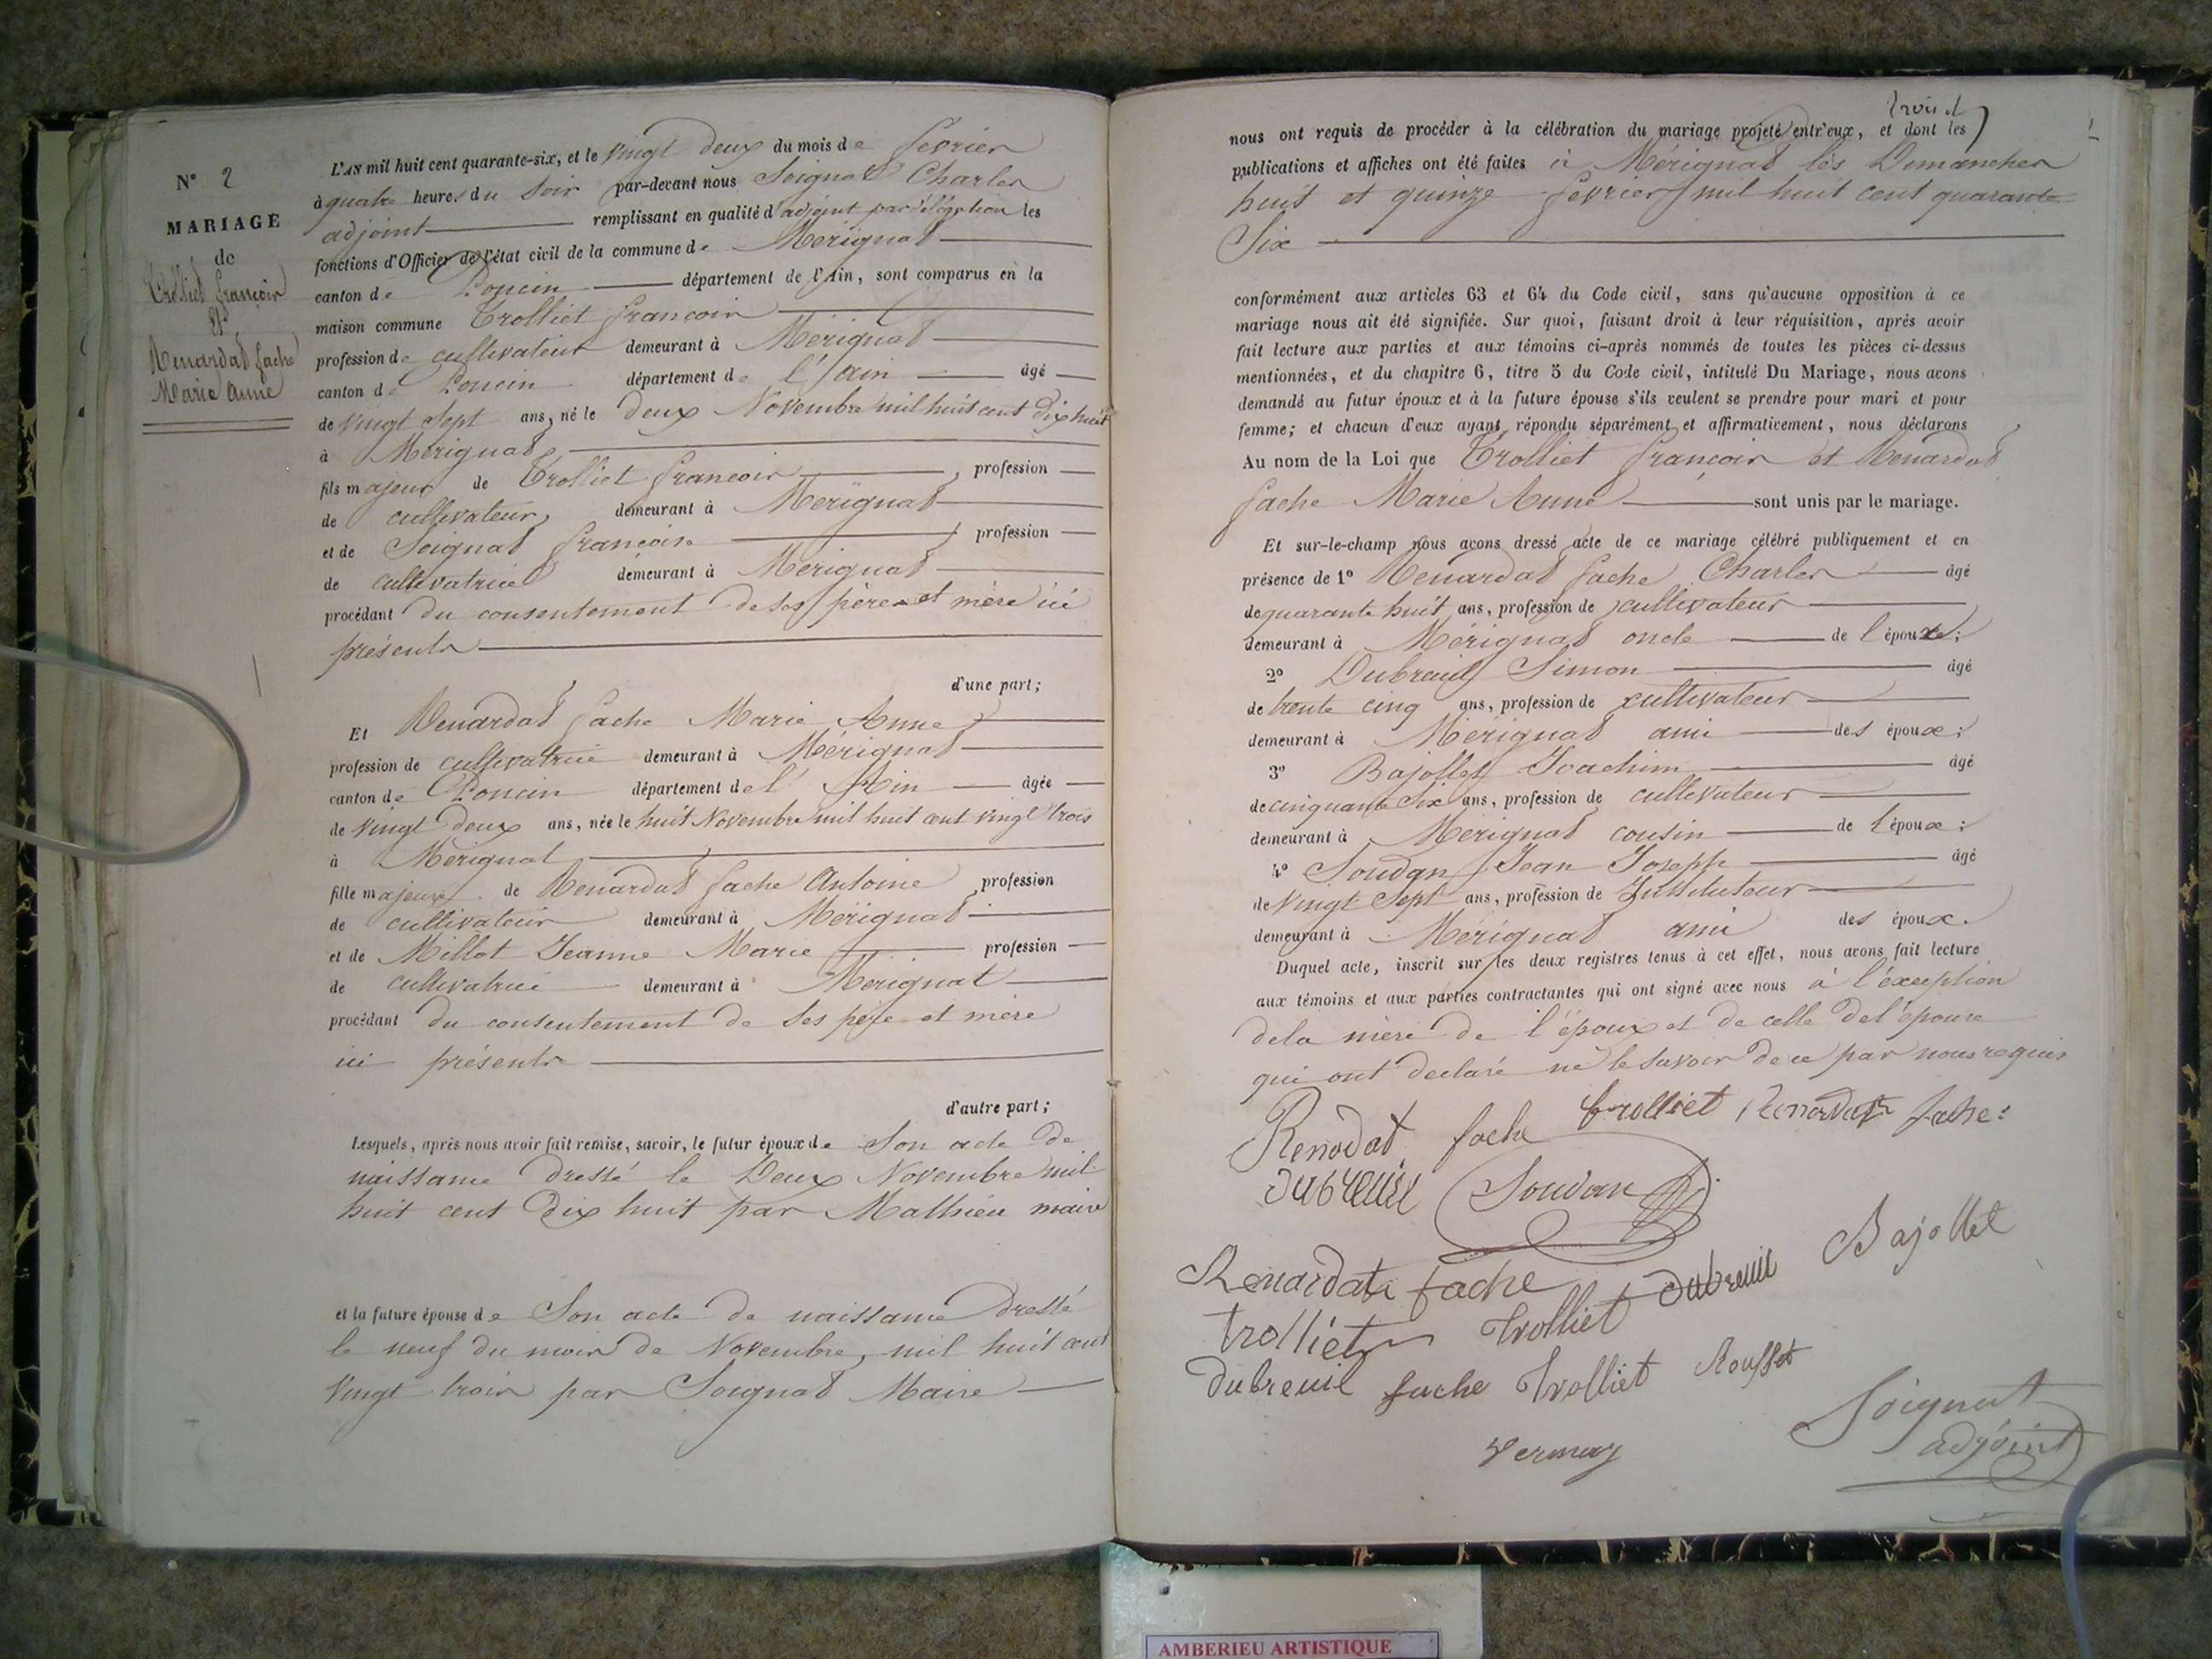 N° 2
MARIAGE
de
Trolliet françois
et
Renardat fache
Marie Anne
L'AN mil huit cent quarante-six, et le vingt deux du mois de février
à quatre heures du soir par-devant nous Soignat Charles
adjoint remplissant en qualité d'adjoint par délégation les
fonctions d'Officier de l'état civil de la commune de Mérignat
canton de Poncin département de l'Ain, sont comparus en la
maison commune Trolliet françois
profession de cultivateur demeurant à Mérignat
canton de Poncin département de l'Ain âgé
de vingt sept ans, né le deux Novembre mil huit cent dix huit
à Mérignat
fils majeur de Trolliet françois profession
de cultivateur, demeurant à Mérignat
et de Soignat françoise profession
de cultivatrice demeurant à Mérignat
procédant du consentement de ses père et mère ici
présents
d'une part;
Et Renardat fache Marie Anne
profession de cultivatrice demeurant à Mérignat
canton de Poncin département de l'Ain âgée
de vingt deux ans, née le huit Novembre mil huit cent vingt trois
à Mérignat
fille majeure de Renardat fache Antoine profession
de cultivateur demeurant à Mérignat
et de Millot Jeanne Marie profession
de cultivatrice demeurant à Mérignat
procédant du consentement de ses père et mère
ici présents
d'autre part;
Lesquels, après nous avoir fait remise, savoir, le futur époux de Son acte de
naissance dressé le Deux Novembre mil
huit cent Dix huit par Mathieu maire
et la future épouse de Son acte de naissance dressé
le neuf du mois de Novembre, mil huit cent
vingt trois par Soignat Maire
trois
nous ont requis de procéder à la célébration du mariage projeté entr'eux, et dont les
publications et affiches ont été faites à Mérignat les Dimanches
huit et quinze février mil huit cent quarante
Six
conformément aux articles 63 et 64 du Code civil, sans qu'aucune opposition à ce
mariage nous ait été signifiée. Sur quoi, faisant droit à leur réquisition, après avoir
fait lecture aux parties et aux témoins ci-après nommés de toutes les pièces ci-dessus
mentionnées, et du chapitre 6, titre 5 du Code civil, intitulé Du Mariage, nous avons
demandé au futur époux et à la future épouse s'ils veulent se prendre pour mari et pour
femme; et chacun d'eux ayant répondu séparément et affirmativement, nous déclarons
Au nom de la Loi que Trolliet françois et Renardat
fache Marie Anne sont unis par le mariage.
Et sur-le-champ nous avons dressé acte de ce mariage célébré publiquement et en
présence de 1° Renardat fache Charles âgé
de quarante huit ans, profession de cultivateur
demeurant à Mérignat oncle de l'épouse;
2° Dubreuil Simon âgé
de trente cinq ans, profession de cultivateur
demeurant à Mérignat ami des époux;
3° Bajollet Joachim âgé
de cinquante Six ans, profession de cultivateur
demeurant à Mérignat cousin de l'époux;
4° Soudan Jean Joseph âgé
de vingt Sept ans, profession de Instituteur
demeurant à Mérignat ami des époux.
Duquel acte, inscrit sur les deux registres tenus à cet effet, nous avons fait lecture
aux témoins et aux parties contractantes qui ont signé avec nous à l'exception
de la mère de l'époux et de celle de l'épouse
qui ont déclaré ne le savoir de ce par nous requis
Renodat fache trolliet Renardat fache
dubreuil Soudan
Renardat fache dubreuil Bajollet
trolliet trolliet
dubreuil fache trolliet Rousset
Soignat
adjoint
vermay
AMBERIEU ARTISTIQUE